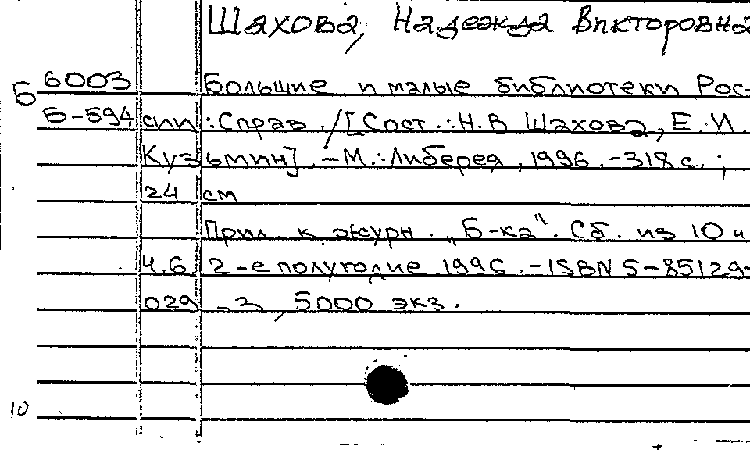 Шахова, Надежда Викторовна
Б 6003 Большие и малые библиотеки Рос-
Б-594 сии: Справ. / [Сост.: Н.В Шахова, Е.И.
Кузьмин]. – М.: Либерея, 1996. – 318 с.;
24 см
Прил. к журн. „Б-ка". Сб. из 10 ч
Ч.6. 2-е полугодие 1996. – ISBN 5-85129-
029-3, 5000 экз.
10